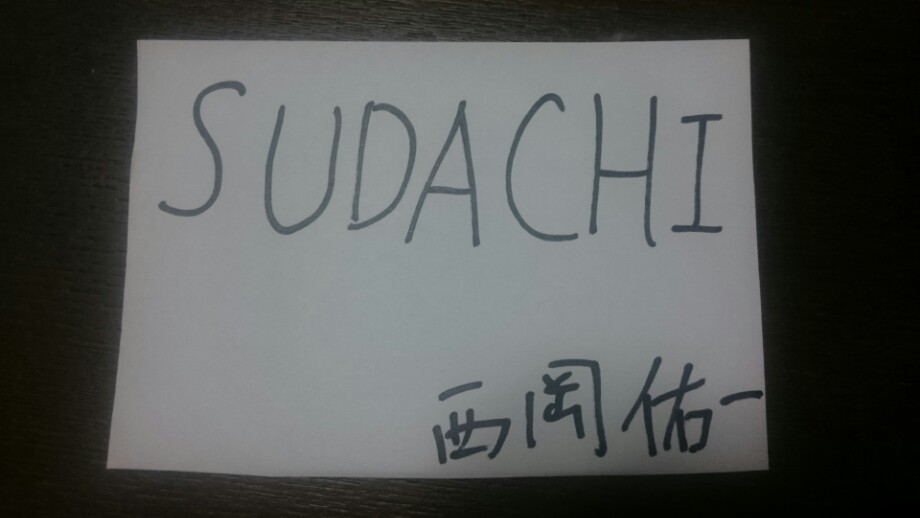 SUDACHI
西岡佑一